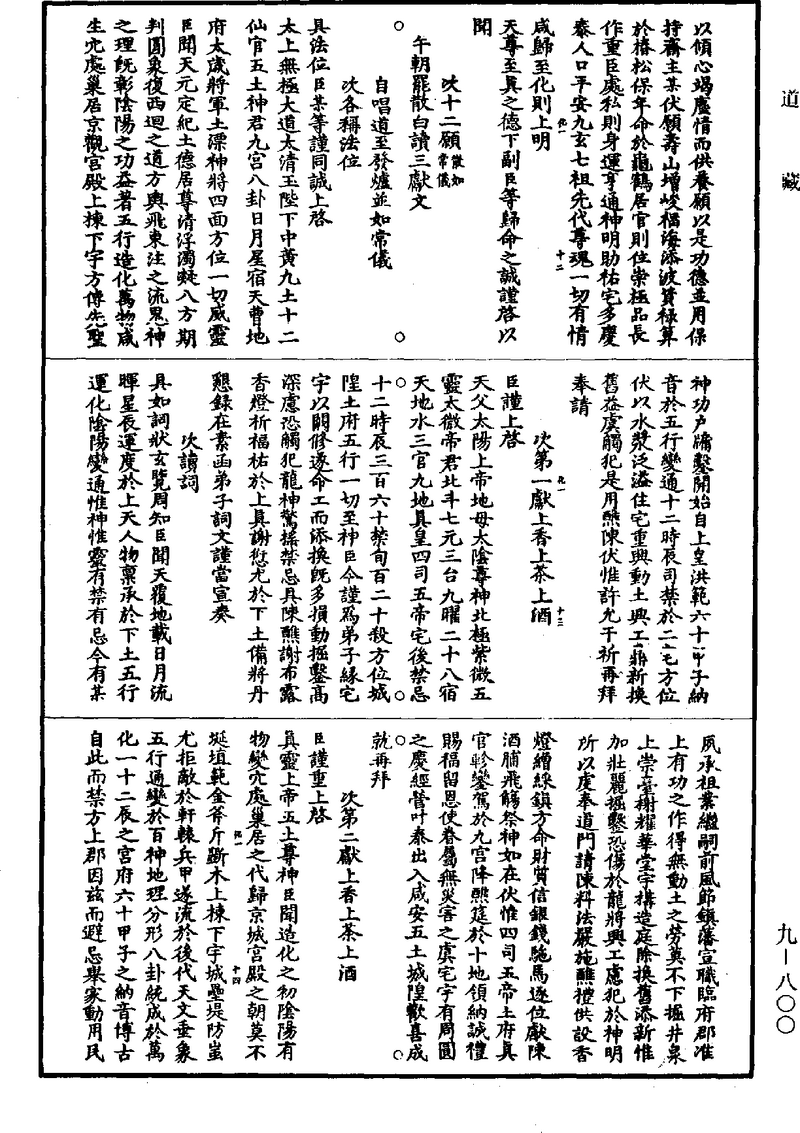 道藏
以傾心竭慮情而供養願以是功德並用保
持齋主某伏願壽山增峻福海添波賀祿算
於椿松保年命於龜鶴居官則位崇極品長
作重臣處私則身運亨通神明助祐宅多慶
泰人口平安九玄七祖先代尊魂一切有情
咸歸至化則上明
天尊至真之德下副臣等歸命之誠謹啓以
聞
次十二願懺如常儀
午朝罷散白讀三獻文
自唱道至發爐並如常儀
次各稱法位
具法位臣某等謹同誠上啓
太上無極大道太清玉陛下中黃九土十二
仙官五土神君九宮八卦日月星宿天曹地
府太歲將軍土溧神將四面方位一切威靈
臣聞天元定紀土德居尊清浮濁凝八方期
判圓象復西迴之道方輿飛東注之流鬼神
之理既彰陰陽之功益著五行造化萬物咸
生穴處巢居京觀宮殿上棟下宇方傳先聖
神功户牖鑿開始自上皇洪範六十甲子納
音於五行變通十二時辰司禁於二宅方位
伏以水漿泛溢住宅重興動土興工鼎新換
舊益虞觸犯是用醮陳伏惟許允干祈再拜
奉請
次第一獻上香上茶上酒
臣謹上啓
天父太陽上帝地母太陰尊神北極紫微五
靈太微帝君北斗七元三台九曜二十八宿
天地水三官九地真皇四司五帝宅後禁忌
十二時辰三百六十禁旬百二十殺方位城
隍土府五行一切至神臣今謹為弟子緣宅
宇以闕修遂命工而添換既多損動掘鑿高
深慮恐觸犯龍神驚搖禁忌具陳醮謝布露
香燈祈福祐於上真謝愆尤於下土備將丹
懇錄在素函弟子詞文謹當宣奏
次讀詞
具如詞狀玄覽周知臣聞天覆地載日月流
暉星辰運度於上天人物稟承於下土五行
運化陰陽變通惟神惟靈有禁有忌今有某
夙承祖業繼嗣前風節鎮藩宣職臨府郡准
上有功之作得無動土之勞莫不下掘井泉
上崇臺榭耀華堂宇構造庭除換舊添新惟
加壯麗掘鑿恐傷於龍將興工慮犯於神明
所以虔奉道門請陳科法嚴施醮禮供設香
燈繒綵鎮方命財質信銀錢駞馬逐位獻陳
酒脯飛觴祭神如在伏惟四司五帝土府真
官軫鑾駕於九宮降醮筵於十地領納誠禮
賜福留恩使眷屬無災害之虞宅宇有周圓
之慶經營叶泰出入咸安五土城隍歡喜成
就再拜
次第二獻上香上茶上酒
臣謹重上啓
真靈上帝五土尊神臣聞造化之初陰陽有
物變穴處巢居之代歸京城宮殿之朝莫不
埏埴範金斧斤斲木上棟下宇城壘堤防蚩
尤拒敵於軒轅兵甲遂流於後代天文垂象
五行通變於百神地理分形八卦統成於萬
化一十二辰之宮府六十甲子之納音傳古
自此而禁方上郡因茲而避忌舉家動用民
九一 十二
九一 十三
九一 十四
九—八〇〇